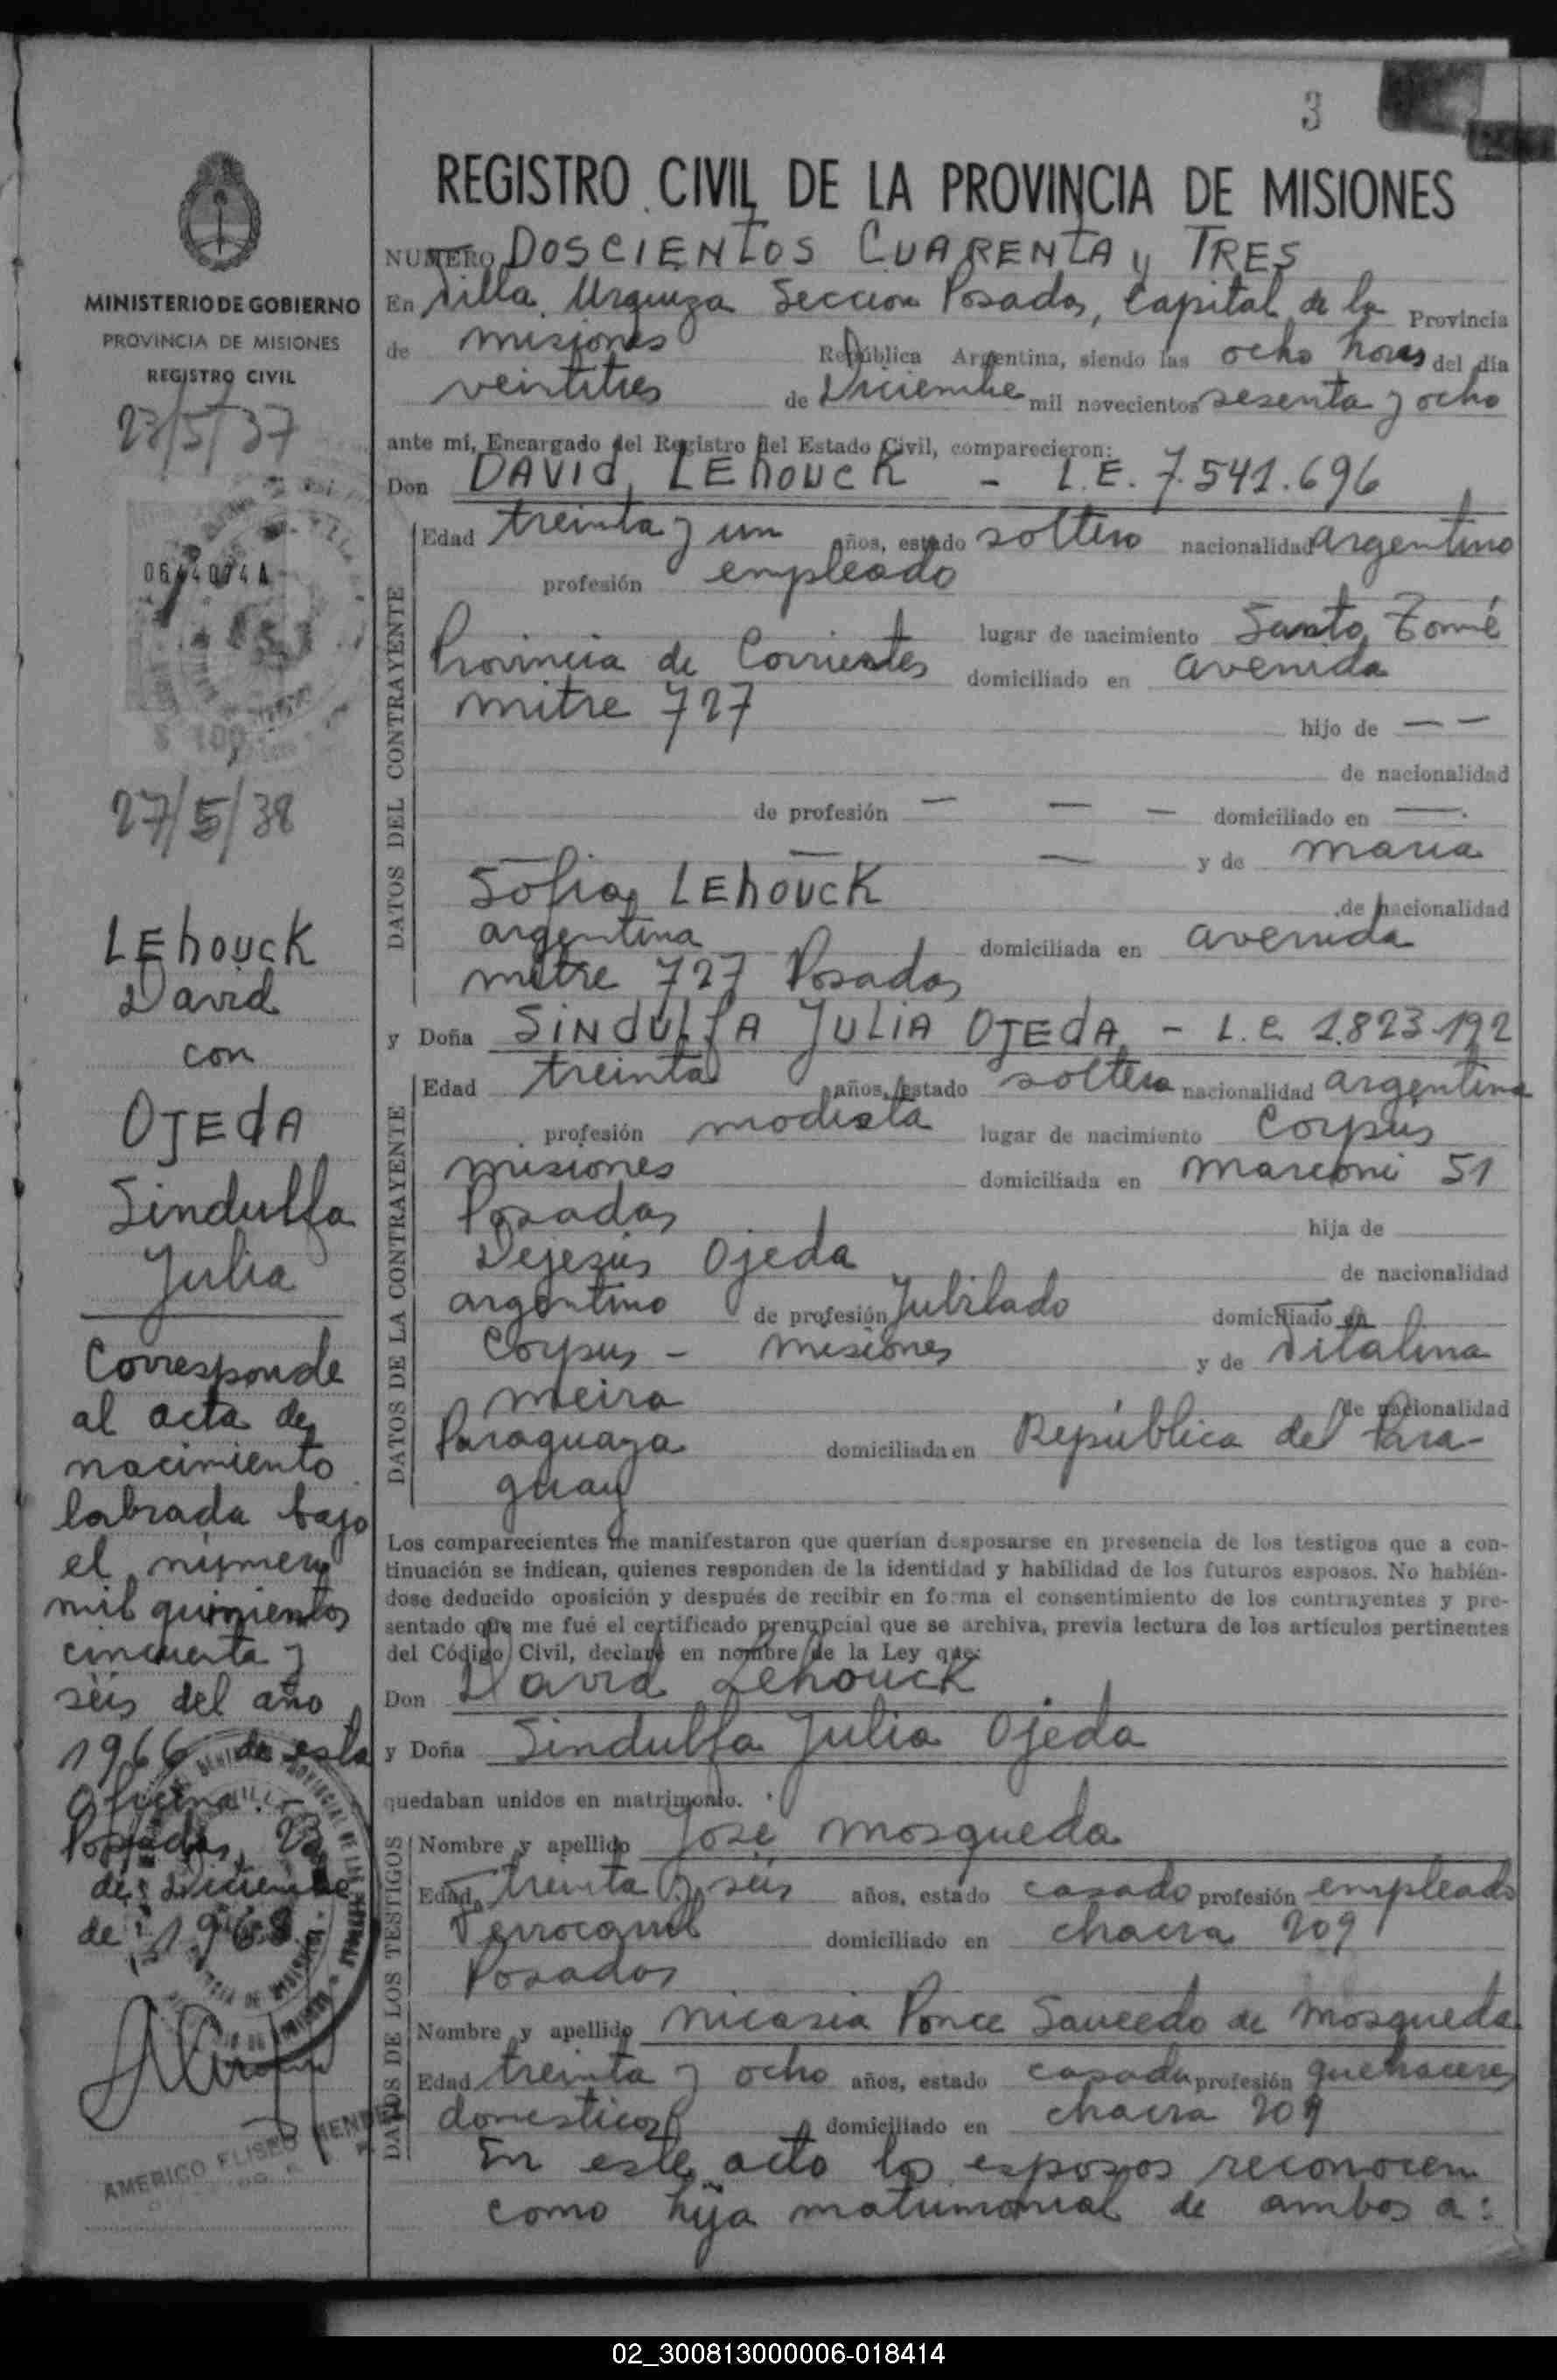 3
REGISTRO CIVIL DE LA PROVINCIA DE MISIONES
NUMERO DOSCIENTOS CUARENTA y TRES
En Villa Urquiza Seccion Posadas, Capital de la Provincia
de misiones República Argentina, siendo las ocho horas del día
veintitres de Diciembre mil novecientos sesenta y ocho
ante mí, Encargado del Registro del Estado Civil, comparecieron:
Don DAVID LEhOUCK - L.E. 7.541.696
DATOS DEL CONTRAYENTE
Edad treinta y un años, estado soltero nacionalidad argentino
profesión empleado
lugar de nacimiento Santo Tomé
Provincia de Corrientes domiciliado en avenida
mitre 727 hijo de — —
de nacionalidad
de profesión — — — domiciliado en —.
— — — y de maria
Sofia LEhOUCK de nacionalidad
argentina domiciliada en avenida
mitre 727 Posadas
y Doña SINDULFA JULIA OJEDA - L.C. 1.823.192
DATOS DE LA CONTRAYENTE
Edad treinta años, estado soltera nacionalidad argentina
profesión modista lugar de nacimiento Corpus
misiones domiciliada en marconi 51
Posadas hija de
Dejesús Ojeda de nacionalidad
argentino de profesión Jubilado domiciliado en
Corpus - misiones y de Vitalina
meira de nacionalidad
Paraguaya domiciliada en República del Para-
guay
Los comparecientes me manifestaron que querían desposarse en presencia de los testigos que a con-
tinuación se indican, quienes responden de la identidad y habilidad de los futuros esposos. No habién-
dose deducido oposición y después de recibir en forma el consentimiento de los contrayentes y pre-
sentado que me fué el certificado prenupcial que se archiva, previa lectura de los artículos pertinentes
del Código Civil, declaré en nombre de la Ley que:
Don David Lehouck
y Doña Sindulfa Julia Ojeda
quedaban unidos en matrimonio.
DATOS DE LOS TESTIGOS
Nombre y apellido José mosqueda
Edad treinta y seis años, estado casado profesión empleado
Ferrocarril domiciliado en chacra 209
Posadas
Nombre y apellido nicasia Ponce Saucedo de mosqueda
Edad treinta y ocho años, estado casada profesión quehaceres
domesticos domiciliado en chacra 209
En este acto los esposos reconocen
como hija matrimonial de ambos a:
MINISTERIO DE GOBIERNO
PROVINCIA DE MISIONES
REGISTRO CIVIL
27/5/37
$ 100
27/5/38
LEhOUCK
David
con
OJEDA
Sindulfa
Julia
Corresponde
al acta de
nacimiento
labrada bajo
el número
mil quinientos
cincuenta y
seis del año
1966 de esta
Oficina.-
Posadas, 23
de Diciembre
de 1968.
AMERICO ELISEO MENDEZ
02_300813000006-018414